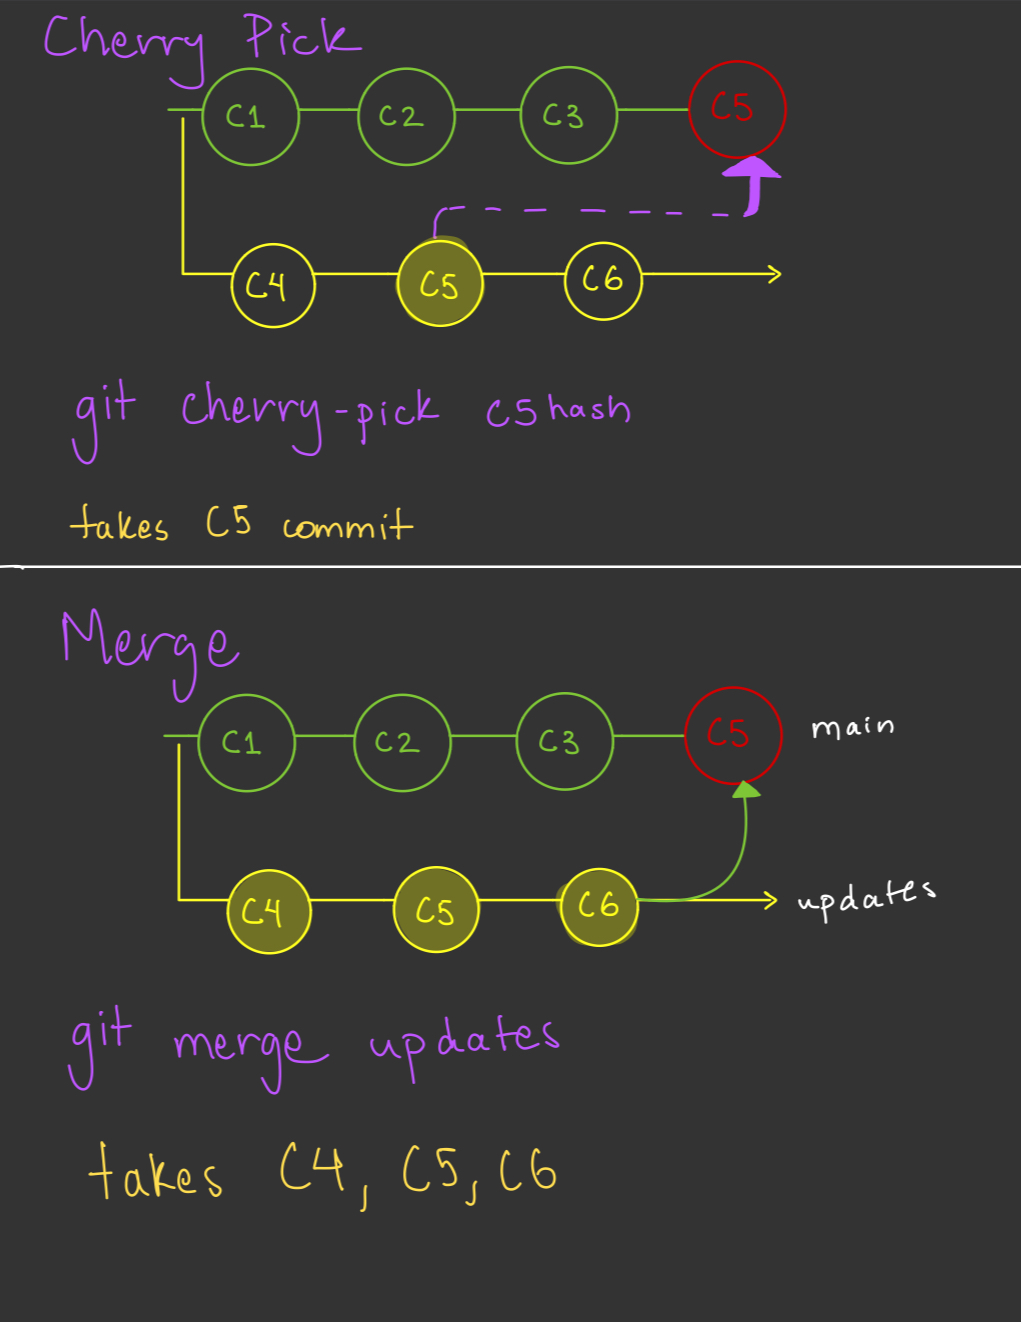 Cherry Pick
C1 C2 C3 C5
C4 C5 C6
git cherry-pick c5hash
takes C5 commit
Merge
C1 C2 C3 C5 main
C4 C5 C6 updates
git merge updates
takes C4, C5, C6